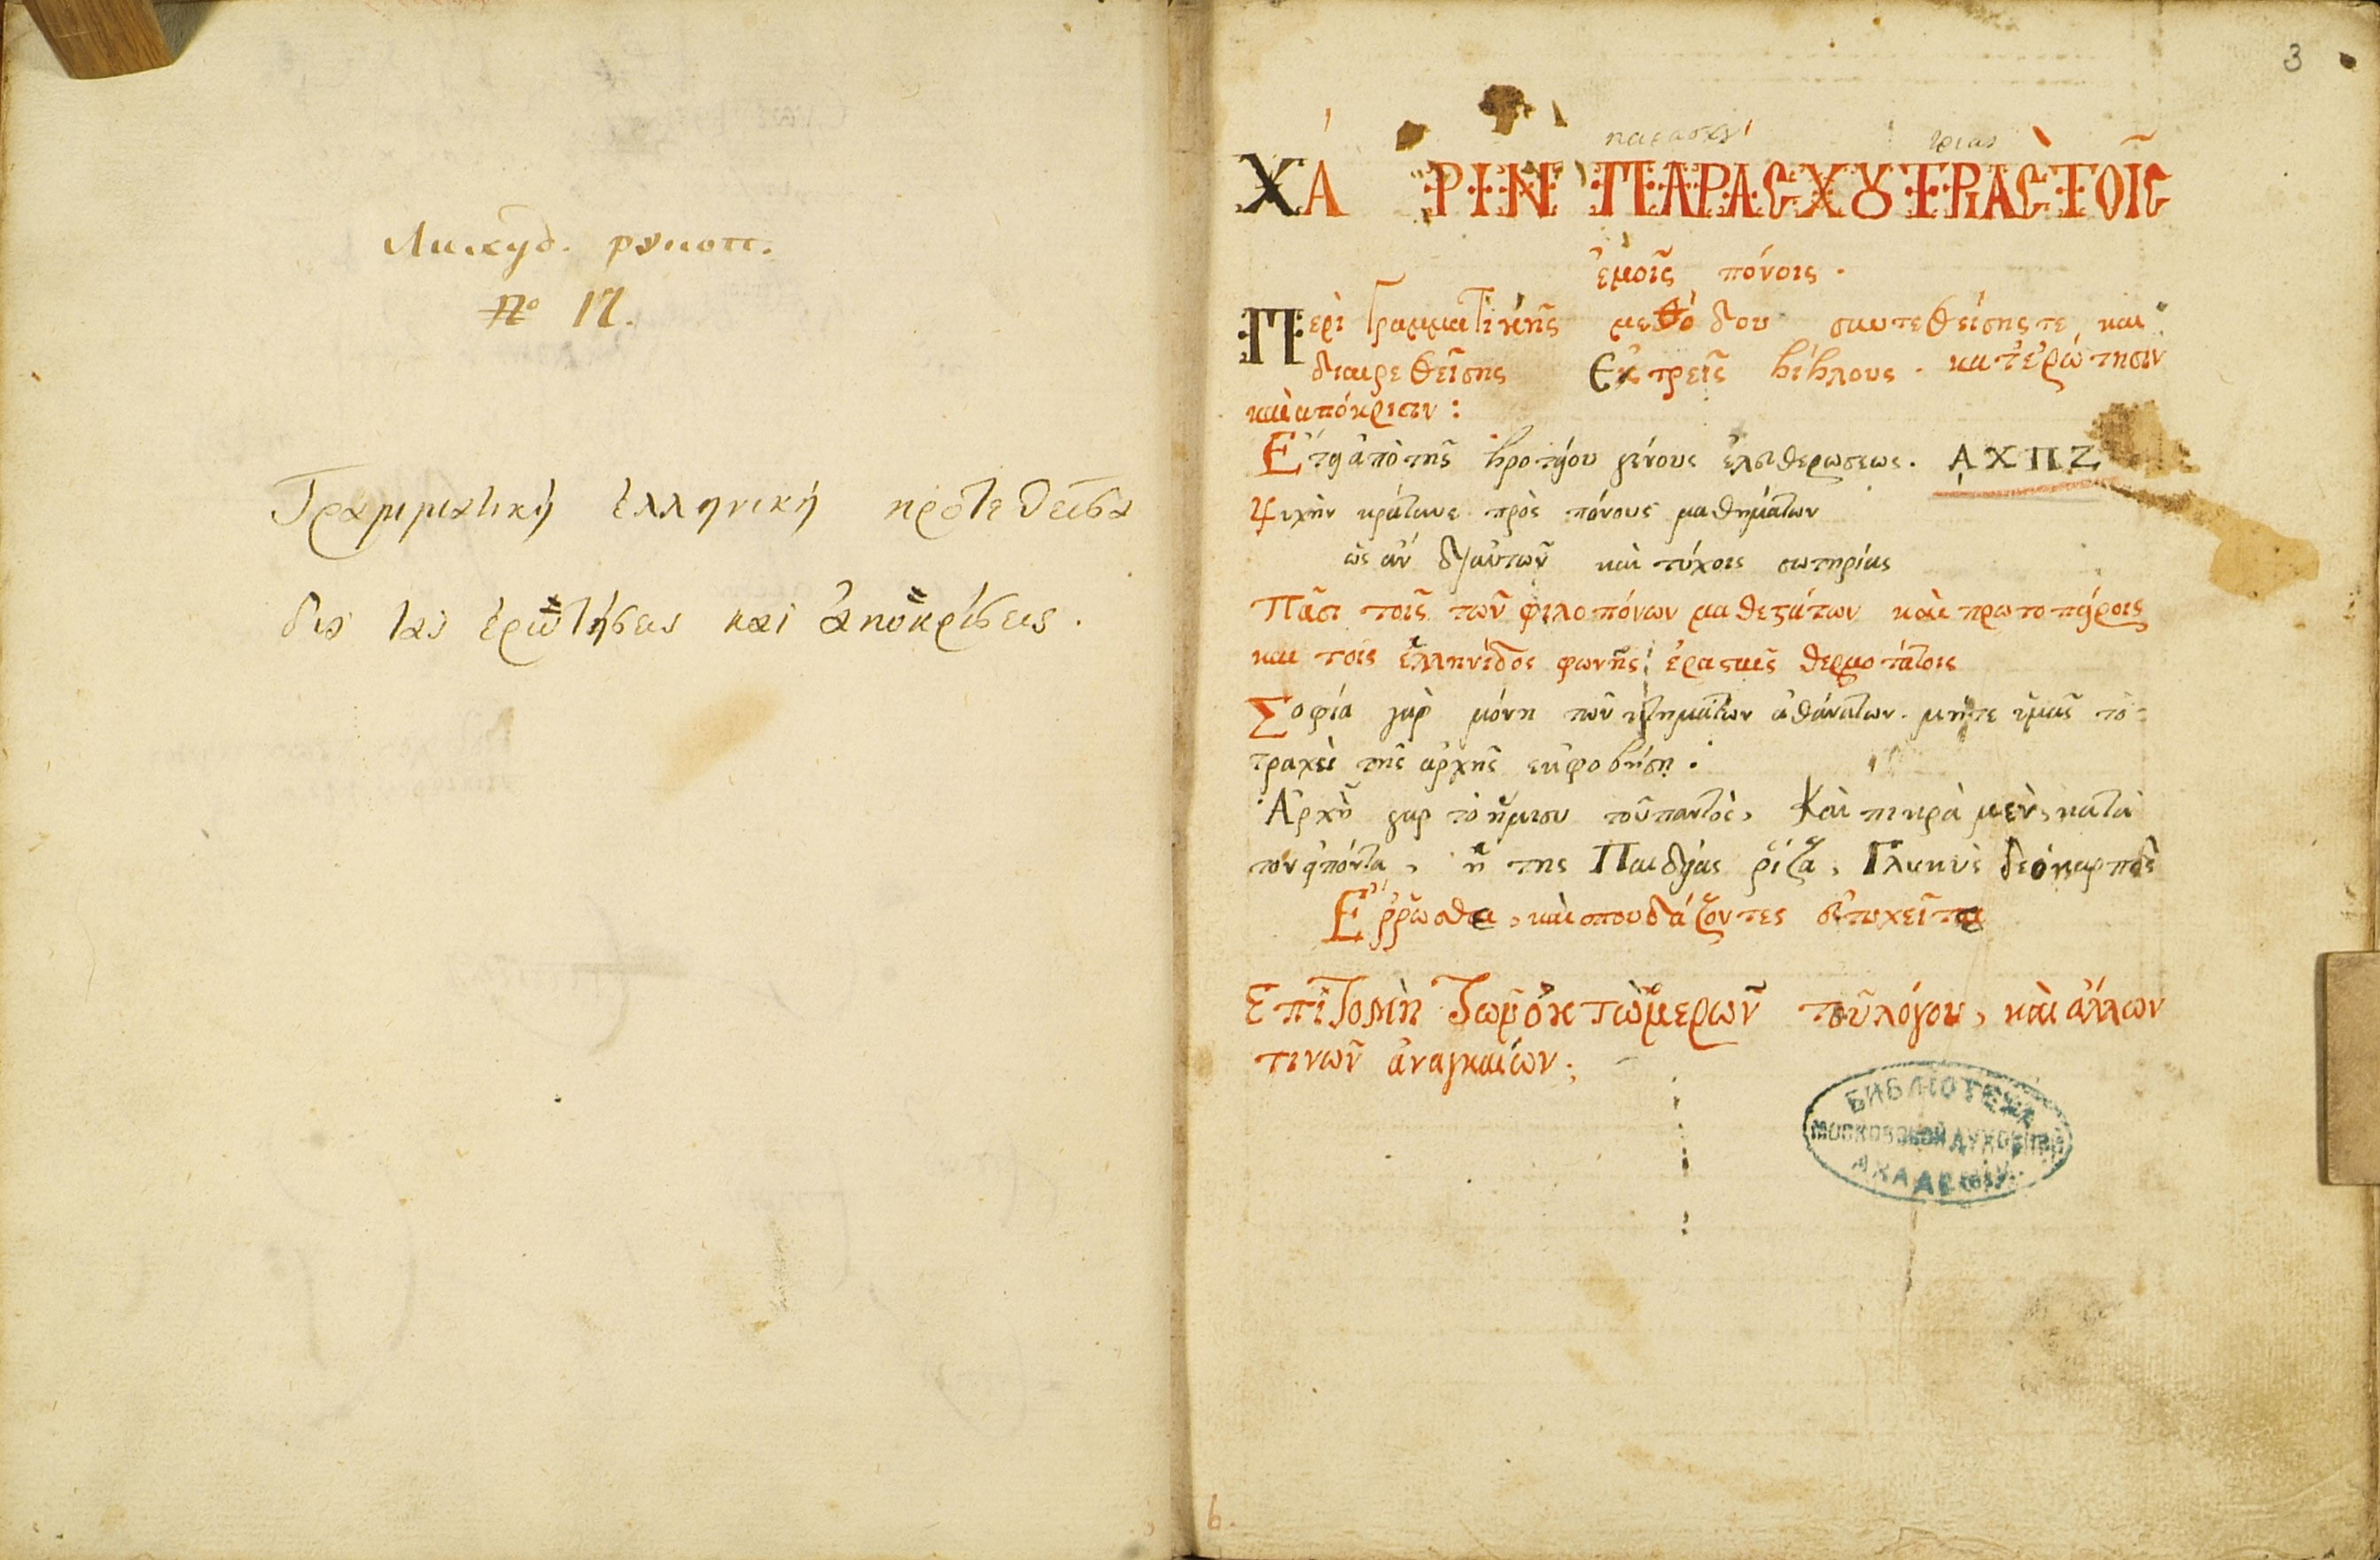 Лихуд. рукоп.
№ 17.
Γραμματική ἑλληνική προτεθεῖσα
δια τας ἐρωτήσεις και ἀποκρίσεις.
3
παρασχου τριας
ΧΆΡΙΝ ΠΑΡΑΣΧΟΥ ΤΡΙᾺΣ ΤΟΙ͂Σ
ἐμοῖς πόνοις.
Περὶ Γραμματικῆς μεθόδου συντεθείσης τε και
διαιρεθεῖσης Εἰς τρεῖς βίβλους. κατ' ἐρώτησιν
καὶ απόκρισιν:
Ἔτει ἀπὸ τῆς βροτείου γένους ἐλευθερώσεως. ΑΧΠΖ
Ψυχὴν κράτυνε πρὸς πόνους μαθημάτων
ὡς ἂν δι' αὐτῶν καὶ τύχοις σωτηρίας
Πᾶσι τοῖς τῶν φιλοπόνων μαθητάτων καὶ πρωτοπείροις
και τοῖς ἑλληνίδος φωνῆς ἐρασταῖς θερμοτάτοις
Σοφία γὰρ μόνη τῶν κτημάτων ἀθάνατων. μήτε ὑμᾶς τὸ
τραχεὶ τῆς ἀρχῆς ἐκφοβήση.
Ἀρχὴ γαρ τὸ ἥμισυ τοῦ παντὸς, Καὶ πικρὰ μὲν, κατὰ
τον εἰπόντα, ἡ της Παιδείας ῥίζα, Γλυκὺς δε ὁ καρπὸς
Ἔῤῥωσθε, καὶ σπουδάζοντες εὐτυχεῖτε
Επιτομὴ Τῶν ὀκτὼ μερῶν τοῦ λόγου, καὶ ἀλλων
τινῶν ἀναγκαίων:
БИБЛІОТЕКА
МОСКОВСКОЙ ДУХОВНОЙ
АКАДЕМІИ
6.